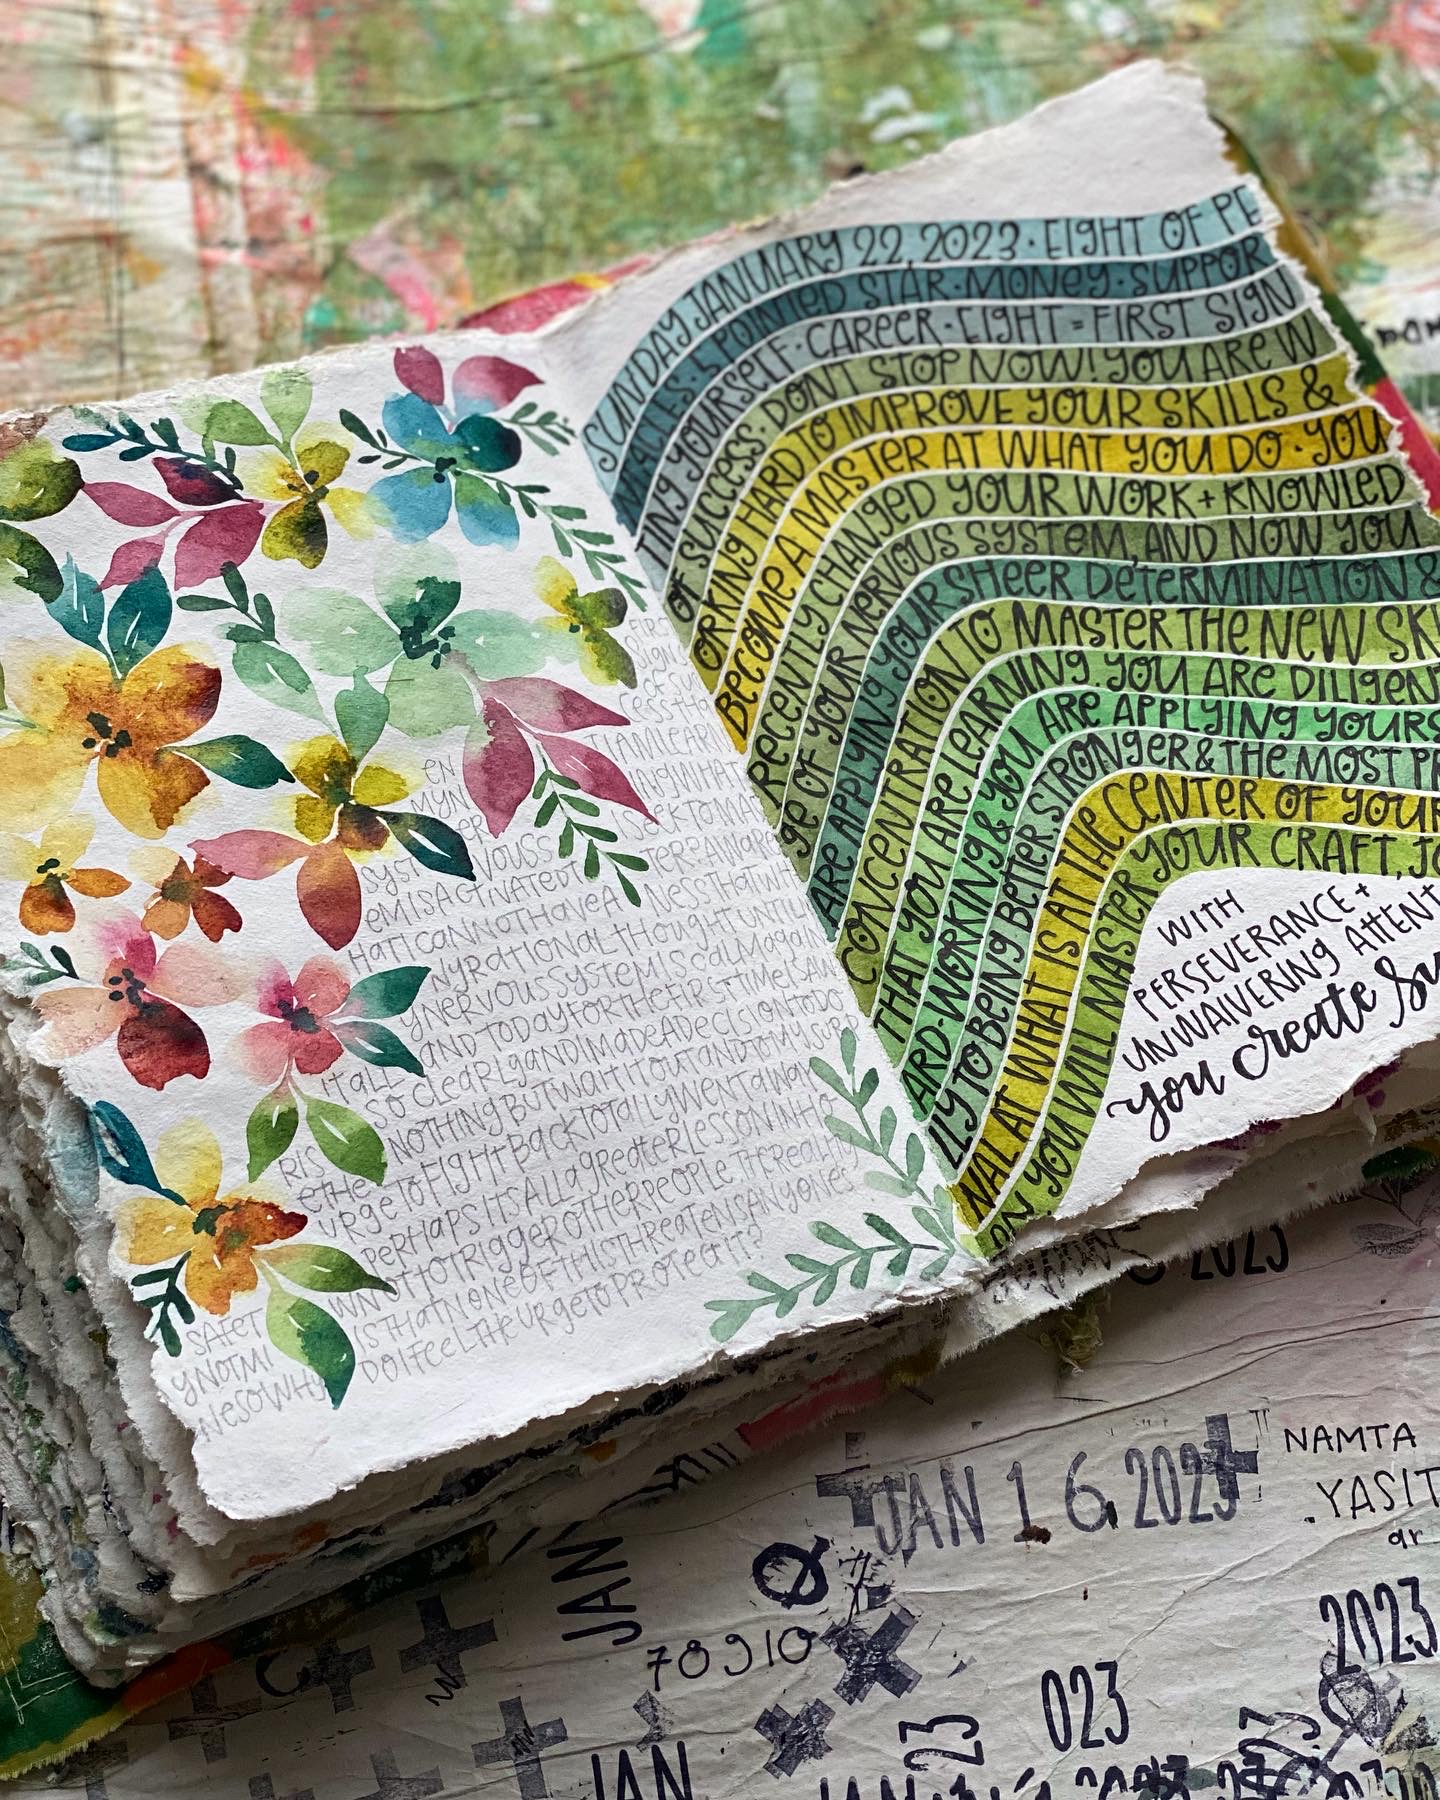 FIRST
SIGN
OF SUCC
ESS THA
T I AM LEARN
EN
ING WHAT
MY N
I SEEK TO MAS
ER
TER? AWARE
SYST VOUSS
NESS THAT WH
EM IS ACTIVATED T
HAT I CANNOT HAVE A
NY RATIONAL THOUGHT UNTIL
MY NERVOUS SYSTEM IS CALM AGAIN
AND TODAY FOR THE FIRST TIME I SAW
IT ALL SO CLEARLY AND I MADE A DECISION TO DO
NOTHING BUT WAIT IT OUT AND TO MY SURP
RISE THE URGE TO FIGHT BACK TOTALLY WENT AWAY
PERHAPS ITS ALL A GREATER LESSON IN HO
W NOT TO TRIGGER OTHER PEOPLE THE REALITY
IS THAT NONE OF THIS THREATENS ANYONES
SAFET
Y NOT MI
NE SO WHY
DO I FEEL THE URGE TO PROTECT IT?
SUNDAY JANUARY 22, 2023 · EIGHT OF PE
NTACLES · 5 POINTED STAR · MONEY · SUPPOR
TING YOURSELF · CAREER · EIGHT = FIRST SIGN
OF SUCCESS · DON'T STOP NOW! YOU ARE W
ORKING HARD TO IMPROVE YOUR SKILLS &
BECOME A MASTER AT WHAT YOU DO · YOU
RECENTLY CHANGED YOUR WORK + KNOWLED
GE OF YOUR NERVOUS SYSTEM, AND NOW YOU
ARE APPLYING YOUR SHEER DETERMINATION &
CONCENTRATION TO MASTER THE NEW SKI
THAT YOU ARE LEARNING. YOU ARE DILIGENT
HARD-WORKING & YOU ARE APPLYING YOURS
LLY TO BEING BETTER, STRONGER & THE MOST PR
NAL AT WHAT IS AT THE CENTER OF YOUR
ON YOU WILL MASTER YOUR CRAFT, JO
WITH
PERSEVERANCE +
UNWAIVERING ATTENT
you create Su
2023
JAN 16 2023
NAMTA
YASIT
ar
JAN
2023
78910
023
23
JAN